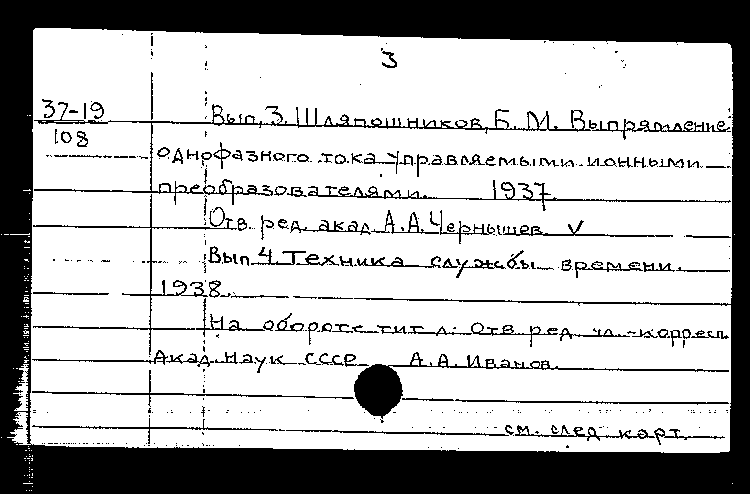 3
37-19
108
Вып. 3. Шляпошников, Б. М. Выпрямление
однофазного тока управляемыми ионными
преобразователями. 1937.
Отв. ред. акад. А. А. Чернышев. V
Вып. 4. Техника службы времени.
1938.
На обороте тит. л.: Отв. ред. чл.-корресп.
Акад. Наук СССР А. А. Иванов.
см. след. карт.